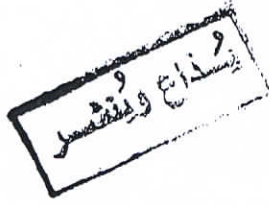 يُذاع ويُنشر